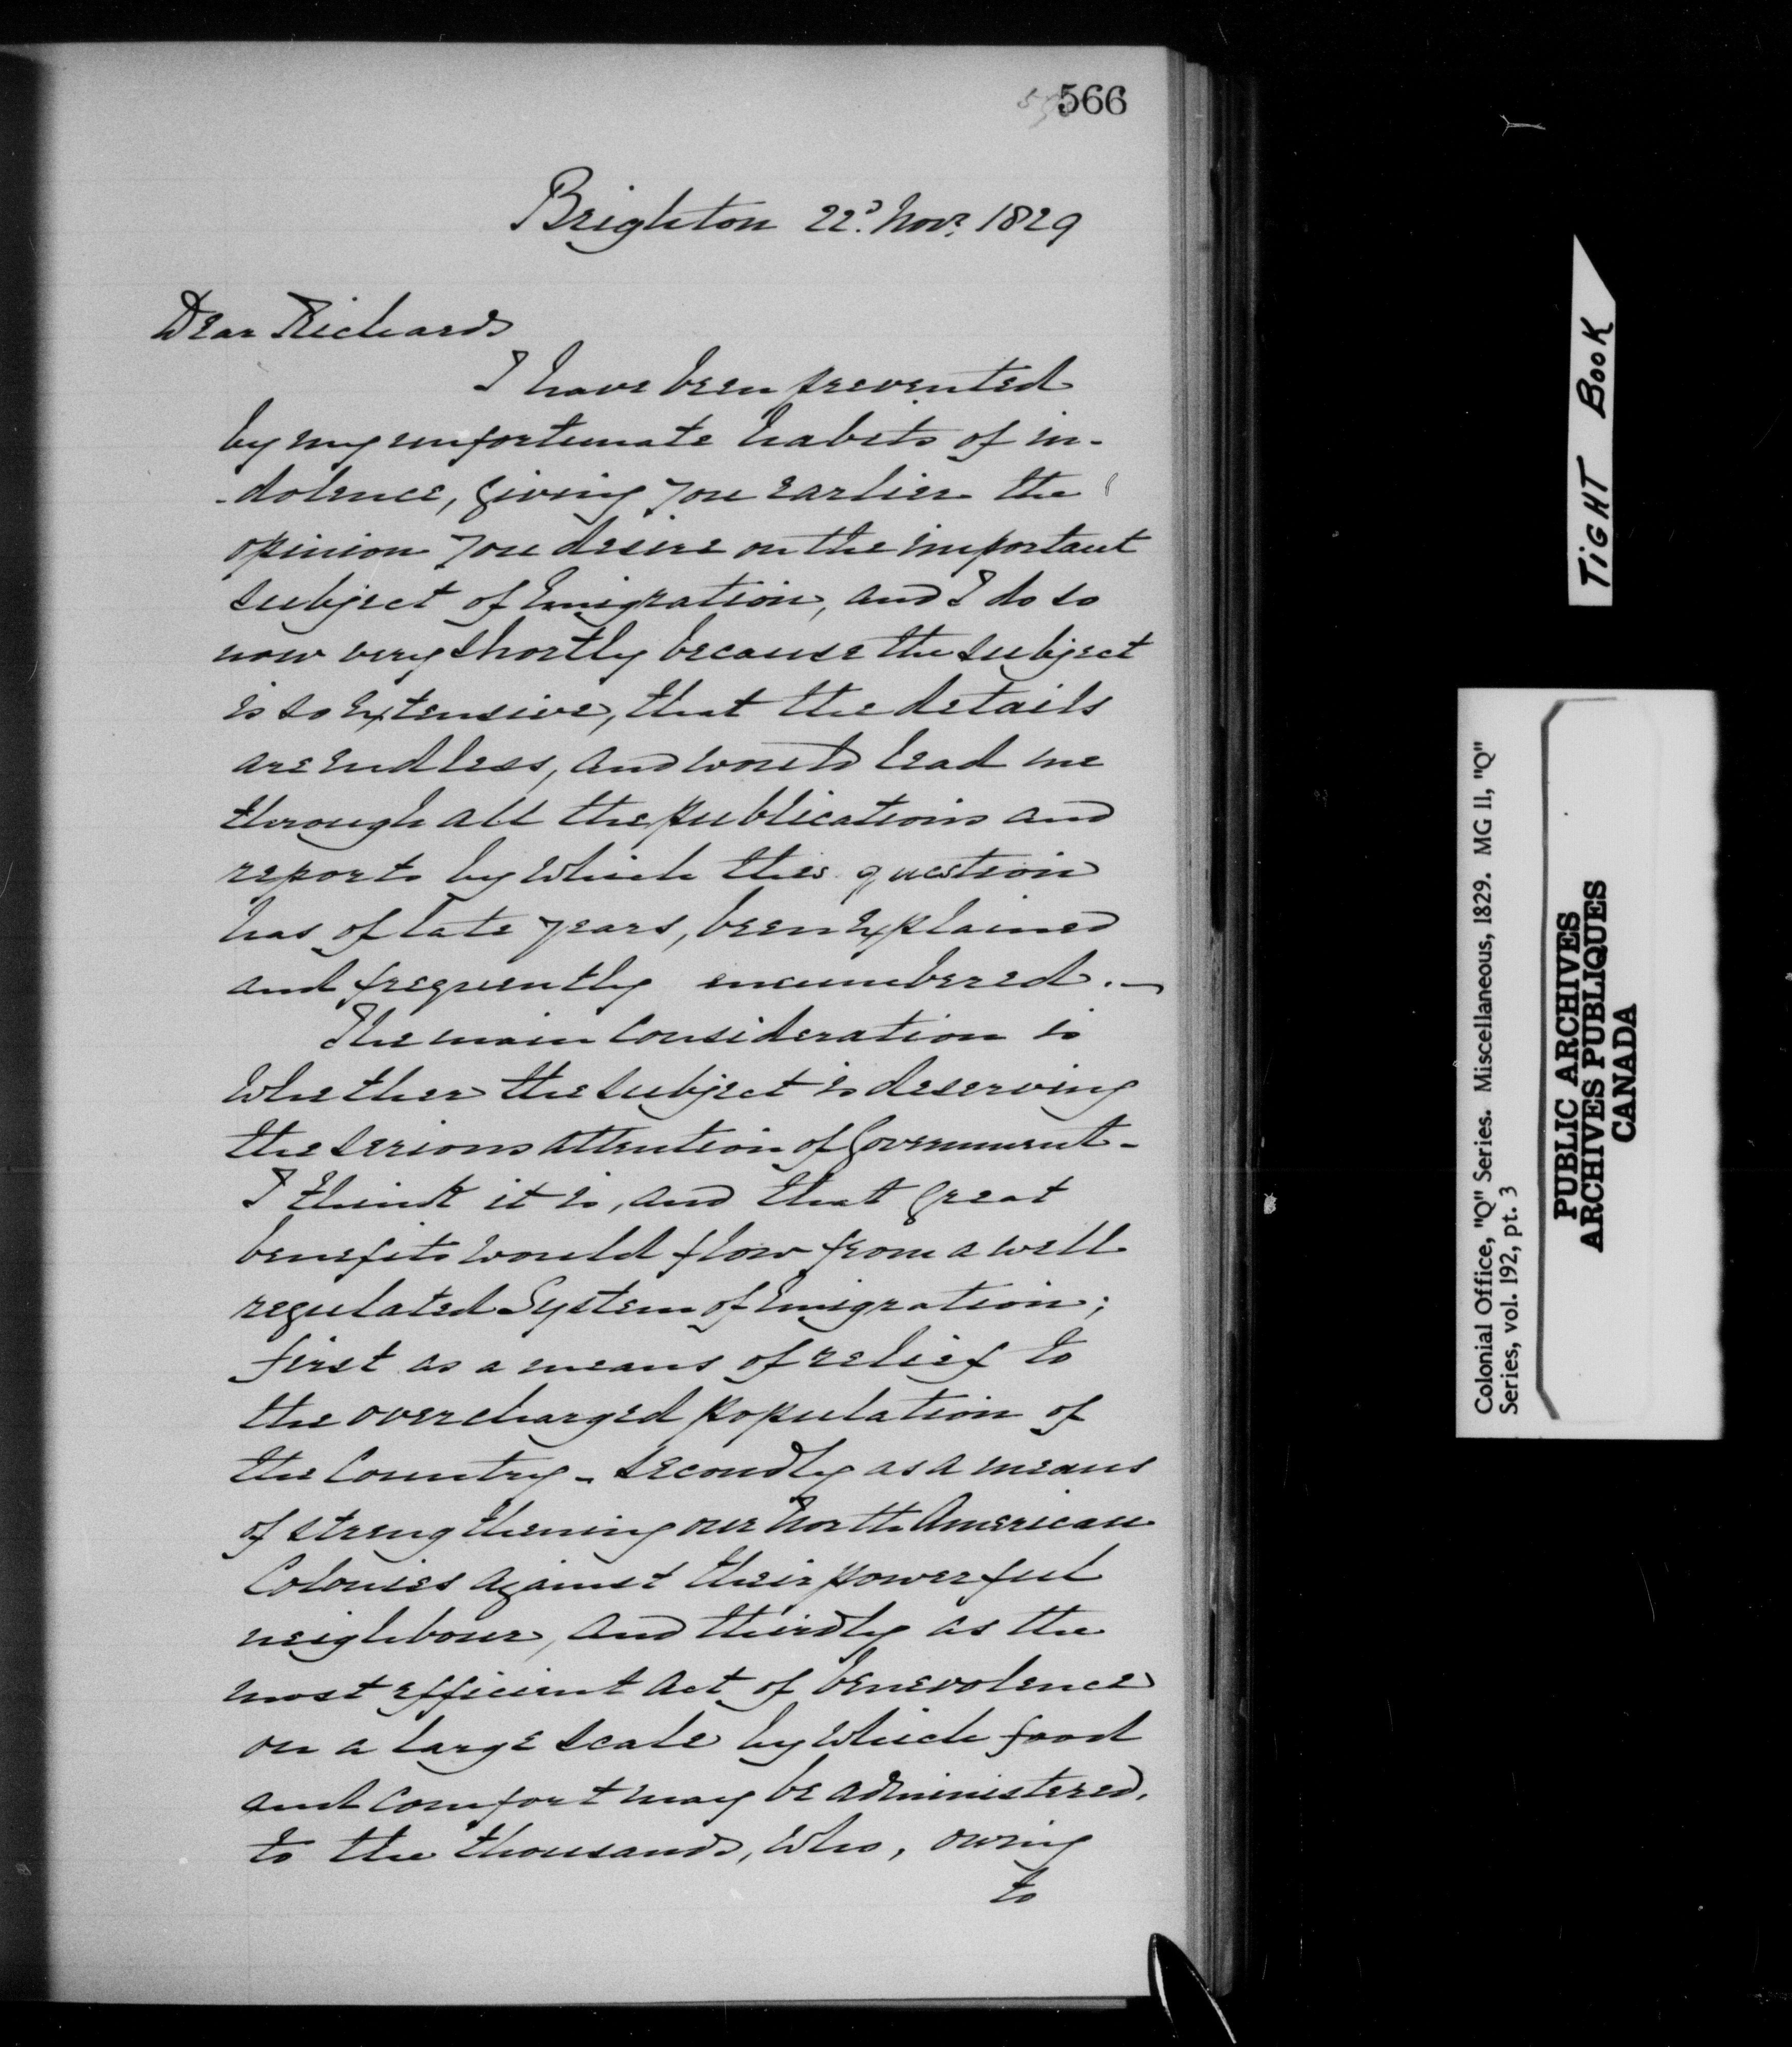 566
Brighton 22d. Novr. 1829
Dear Richards
I have been prevented
by my unfortunate habits of in-
-dolence, giving you earlier the
opinion you desire on the important
subject of Emigration, and I do so
now very shortly because the subject
is so extensive, that the details
are endless, and would lead me
through all the publications and
reports by which this question
has of late years, been explained
and frequently encumbered.—
The main consideration is
whether the subject is deserving
the serious attention of Government-
I think it is, and that great
benefits would flow from a well
regulated System of Emigration;
first as a means of relief to
the overcharged population of
the Country - secondly as a means
of strengthening our North American
Colonies against their powerful
neighbour, and thirdly as the
most efficient act of benevolence
on a large scale by which food
and comfort may be administered,
to the thousands, who, owing
to
TIGHT BOOK
Colonial Office, "Q" Series. Miscellaneous, 1829. MG 11, "Q"
Series, vol. 192, pt. 3
PUBLIC ARCHIVES
ARCHIVES PUBLIQUES
CANADA